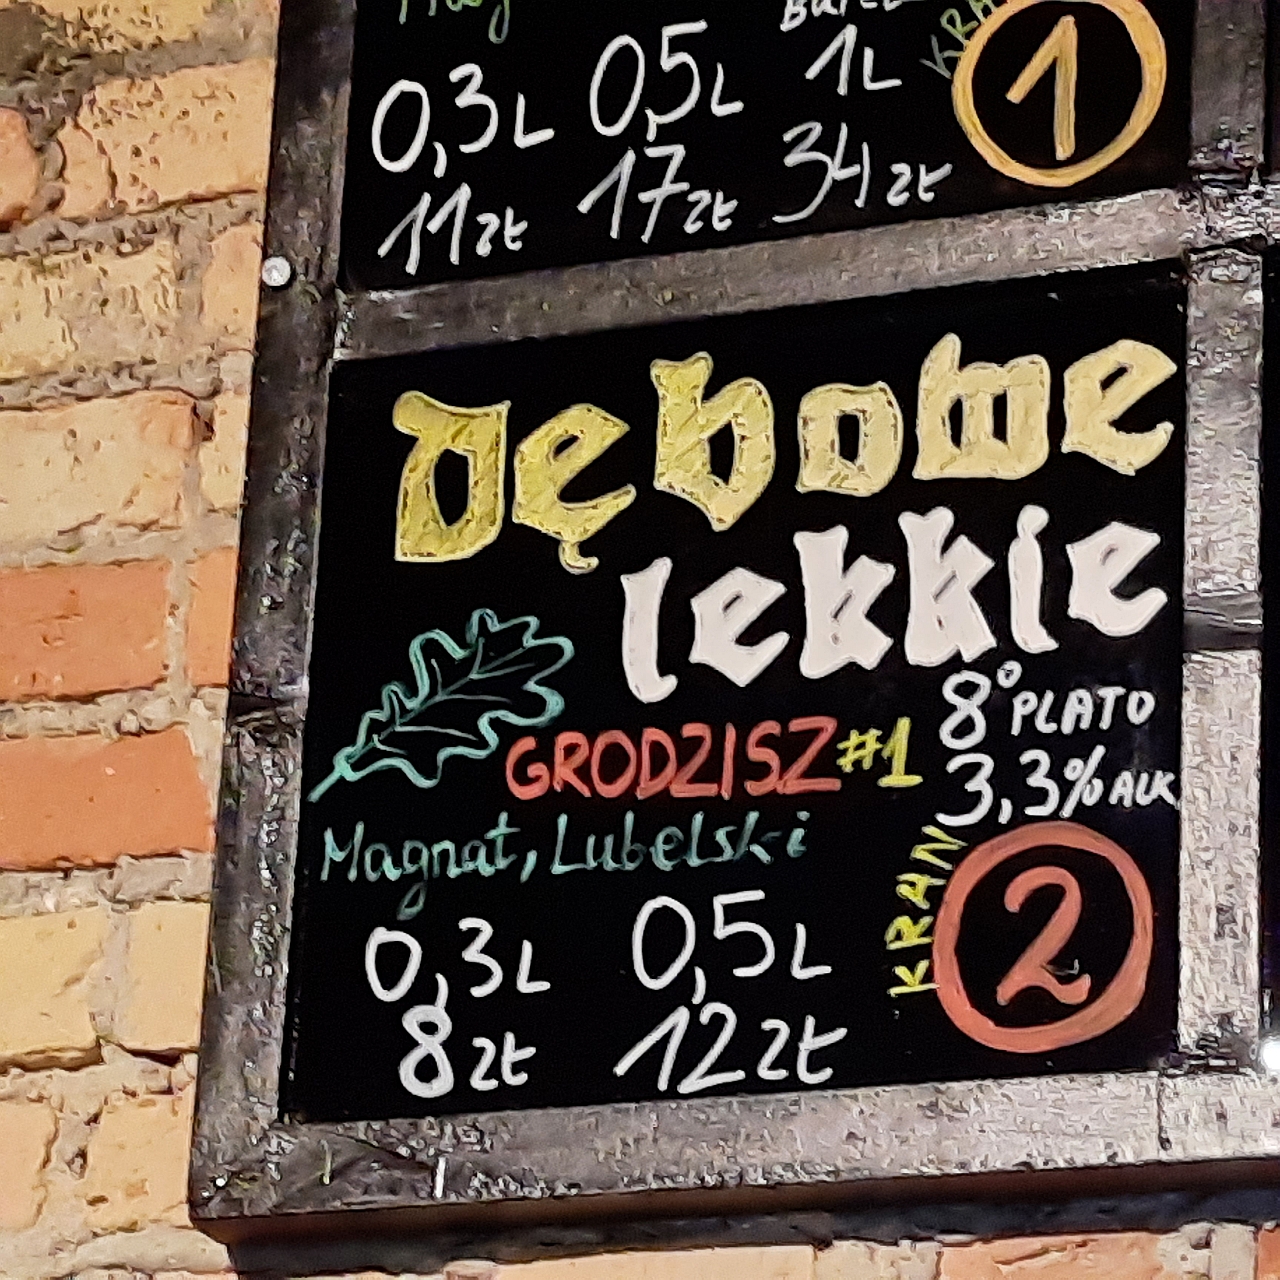 0,3L 0,5L 1L
11zł 17zł 34zł
1
Dębowe
lekkie
8° PLATO
GRODZISZ #1
3,3% ALK
Magnat, Lubelski
KRAN 2
0,3L 0,5L
8zł 12zł